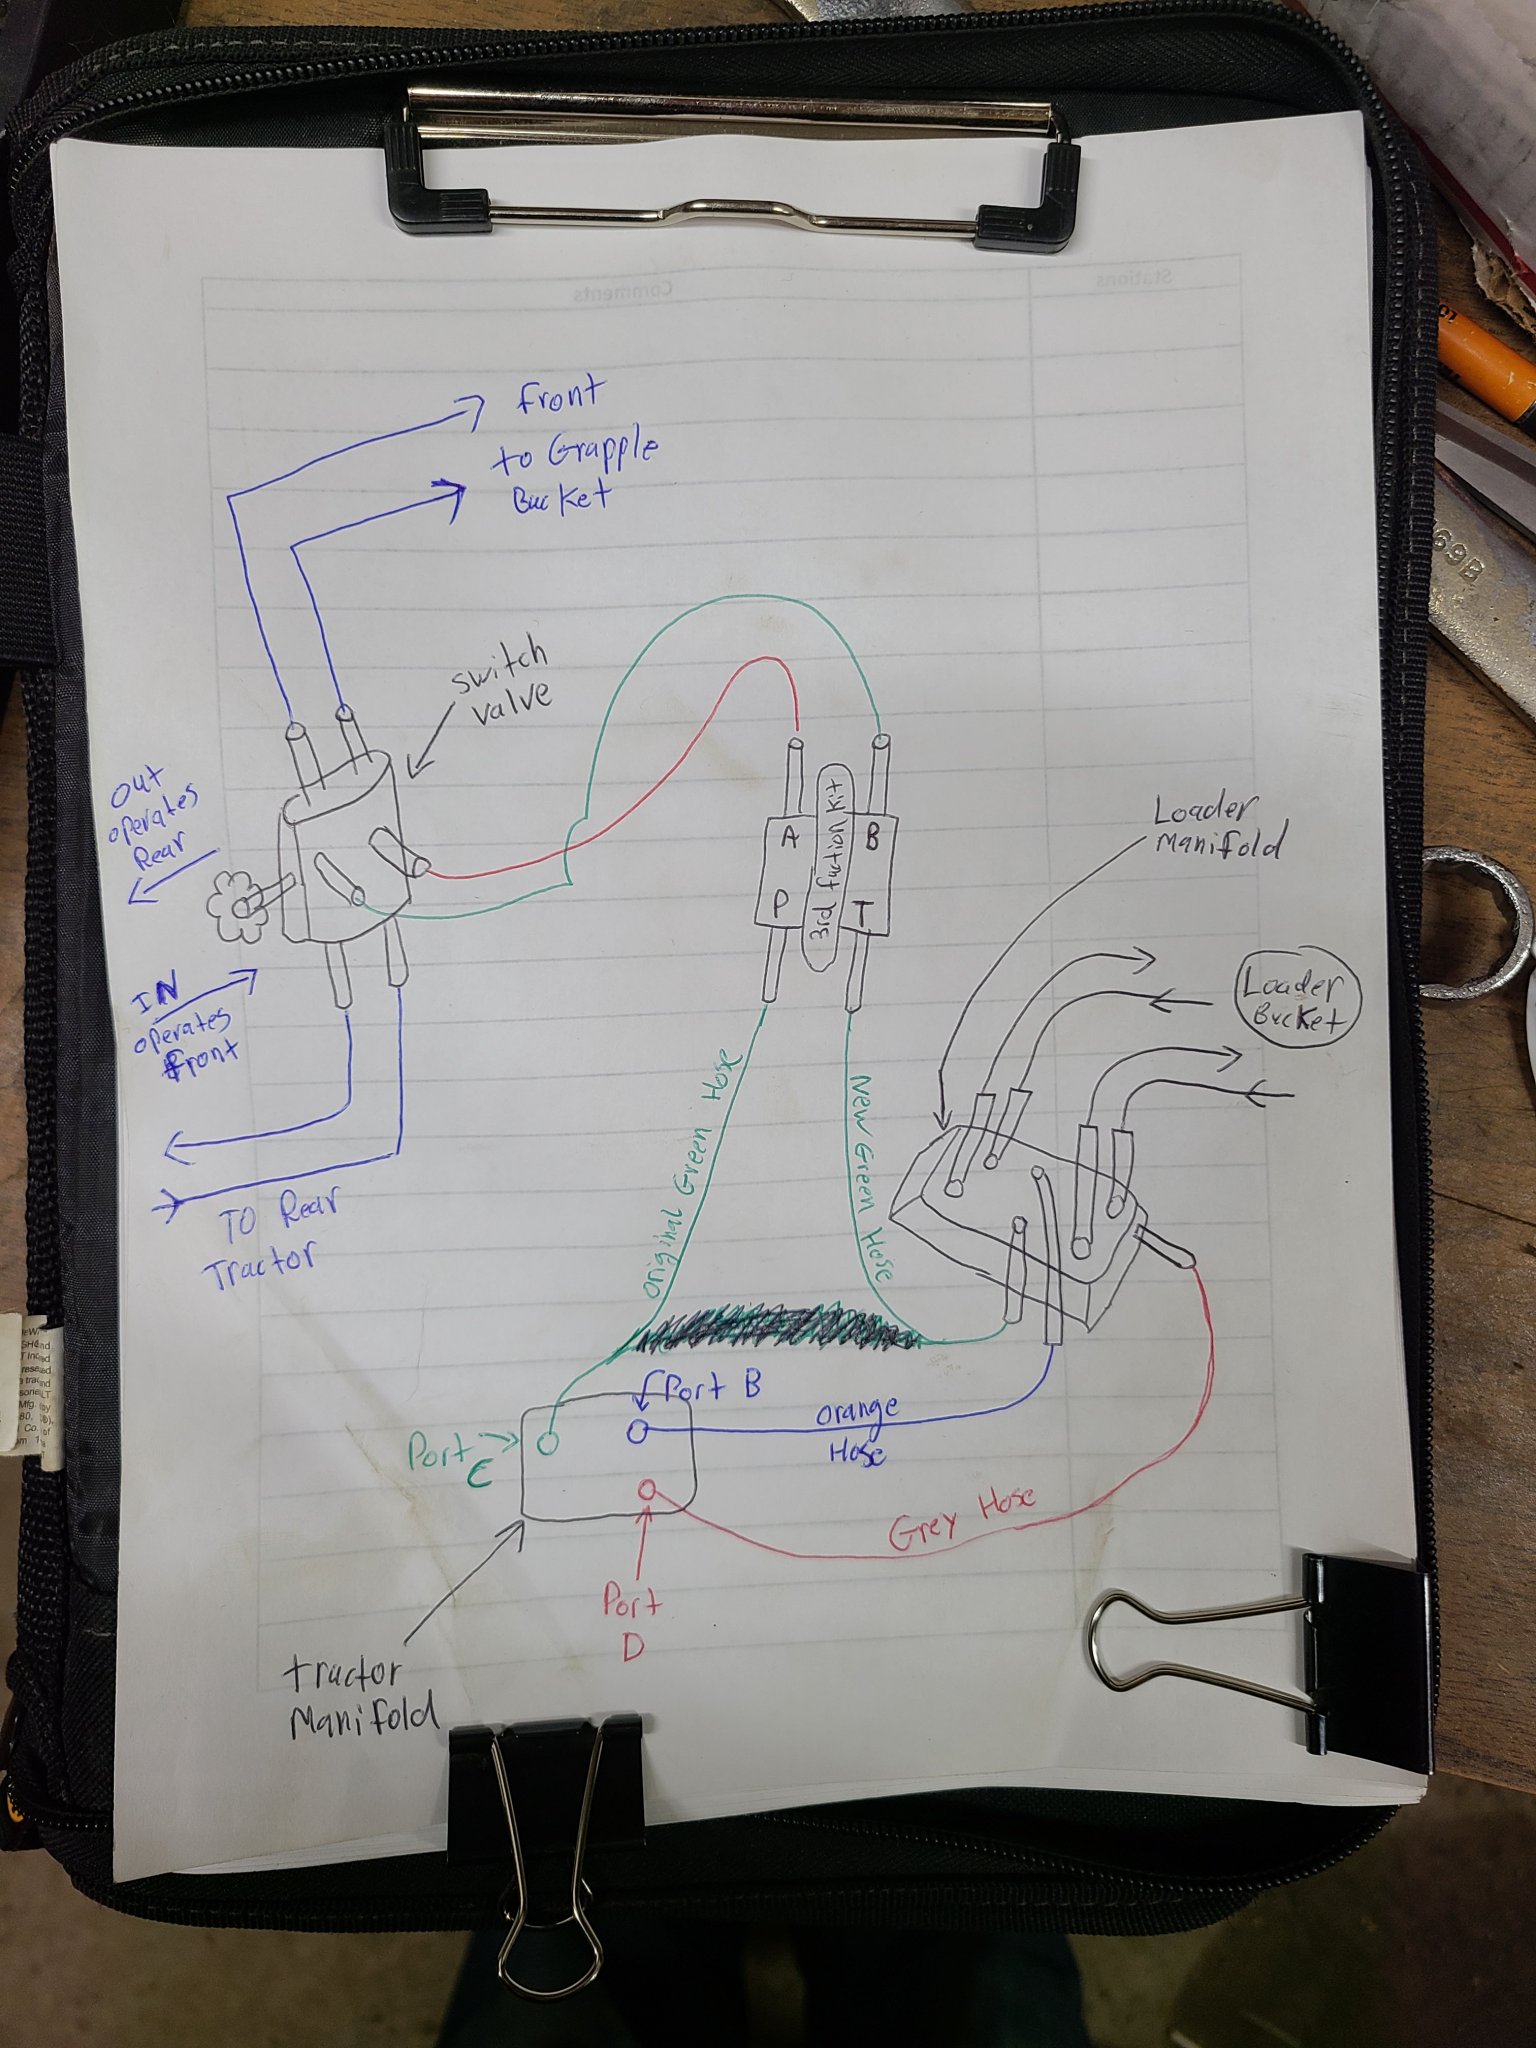 Comments
Stations
front
to Grapple
Bucket
switch
valve
Out
operates
Rear
IN
operates
front
TO Rear
Tractor
A
B
P
T
3rd fuction Kit
Loader
Manifold
Loader
Bucket
Original Green Hose
New Green Hose
Port B
Port
C
orange
Hose
Grey Hose
Port
D
tractor
Manifold
69B